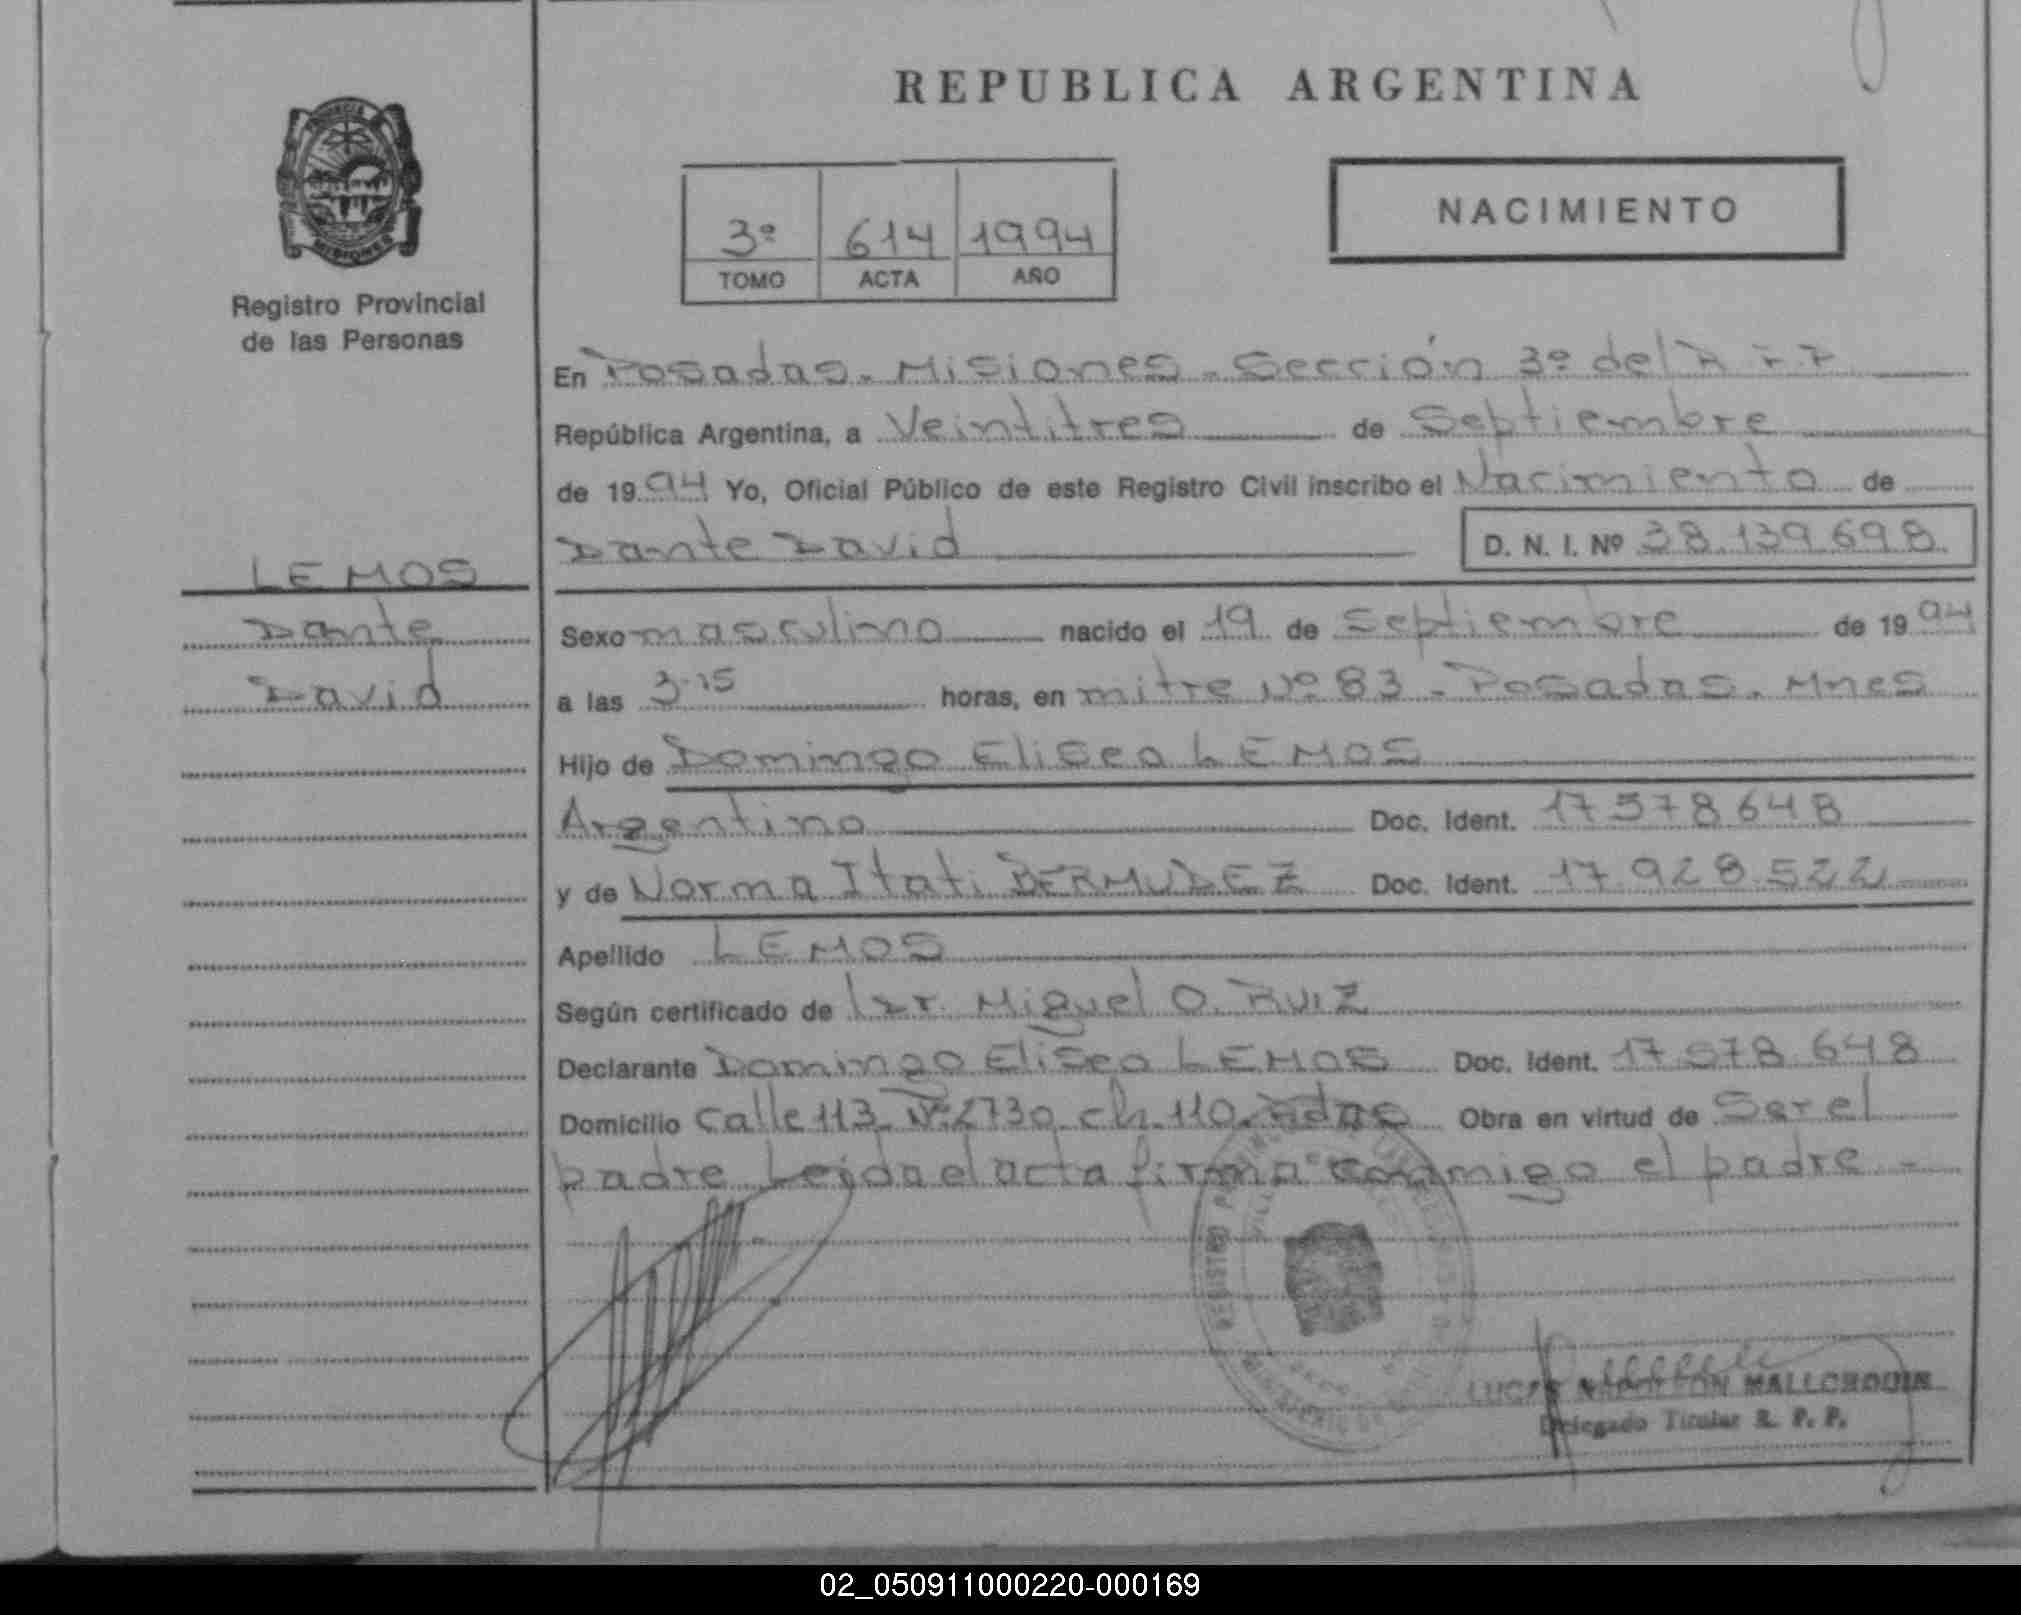 REPUBLICA ARGENTINA
PROVINCIA
MISIONES
Registro Provincial
de las Personas
3º 614 1994
TOMO ACTA AÑO
NACIMIENTO
En Posadas. Misiones. Sección 3º del R.P.P
República Argentina, a Veintitres de Septiembre
de 1994 Yo, Oficial Público de este Registro Civil inscribo el Nacimiento de
Dante David D. N. I. Nº 38.139.698
LEMOS
Dante
David
Sexo masculino nacido el 19 de Septiembre de 1994
a las 3.15 horas, en mitre Nº 83 - Posadas. Mnes
Hijo de Domingo Eliseo LEMOS
Argentino Doc. Ident. 17 578 648
y de Norma Itati BERMUDEZ Doc. Ident. 17.928.522
Apellido LEMOS
Según certificado de Dr. Miguel O. RUIZ
Declarante Domingo Eliseo LEMOS Doc. Ident. 17.578.648
Domicilio Calle 113 Nº 2730 ch. 110. Pdas Obra en virtud de Ser el
padre Leida el acta firma conmigo el padre -
REGISTRO
LUCAS NAPOLEON MALLORQUIN
Delegado Titular R. P. P.
02_050911000220-000169